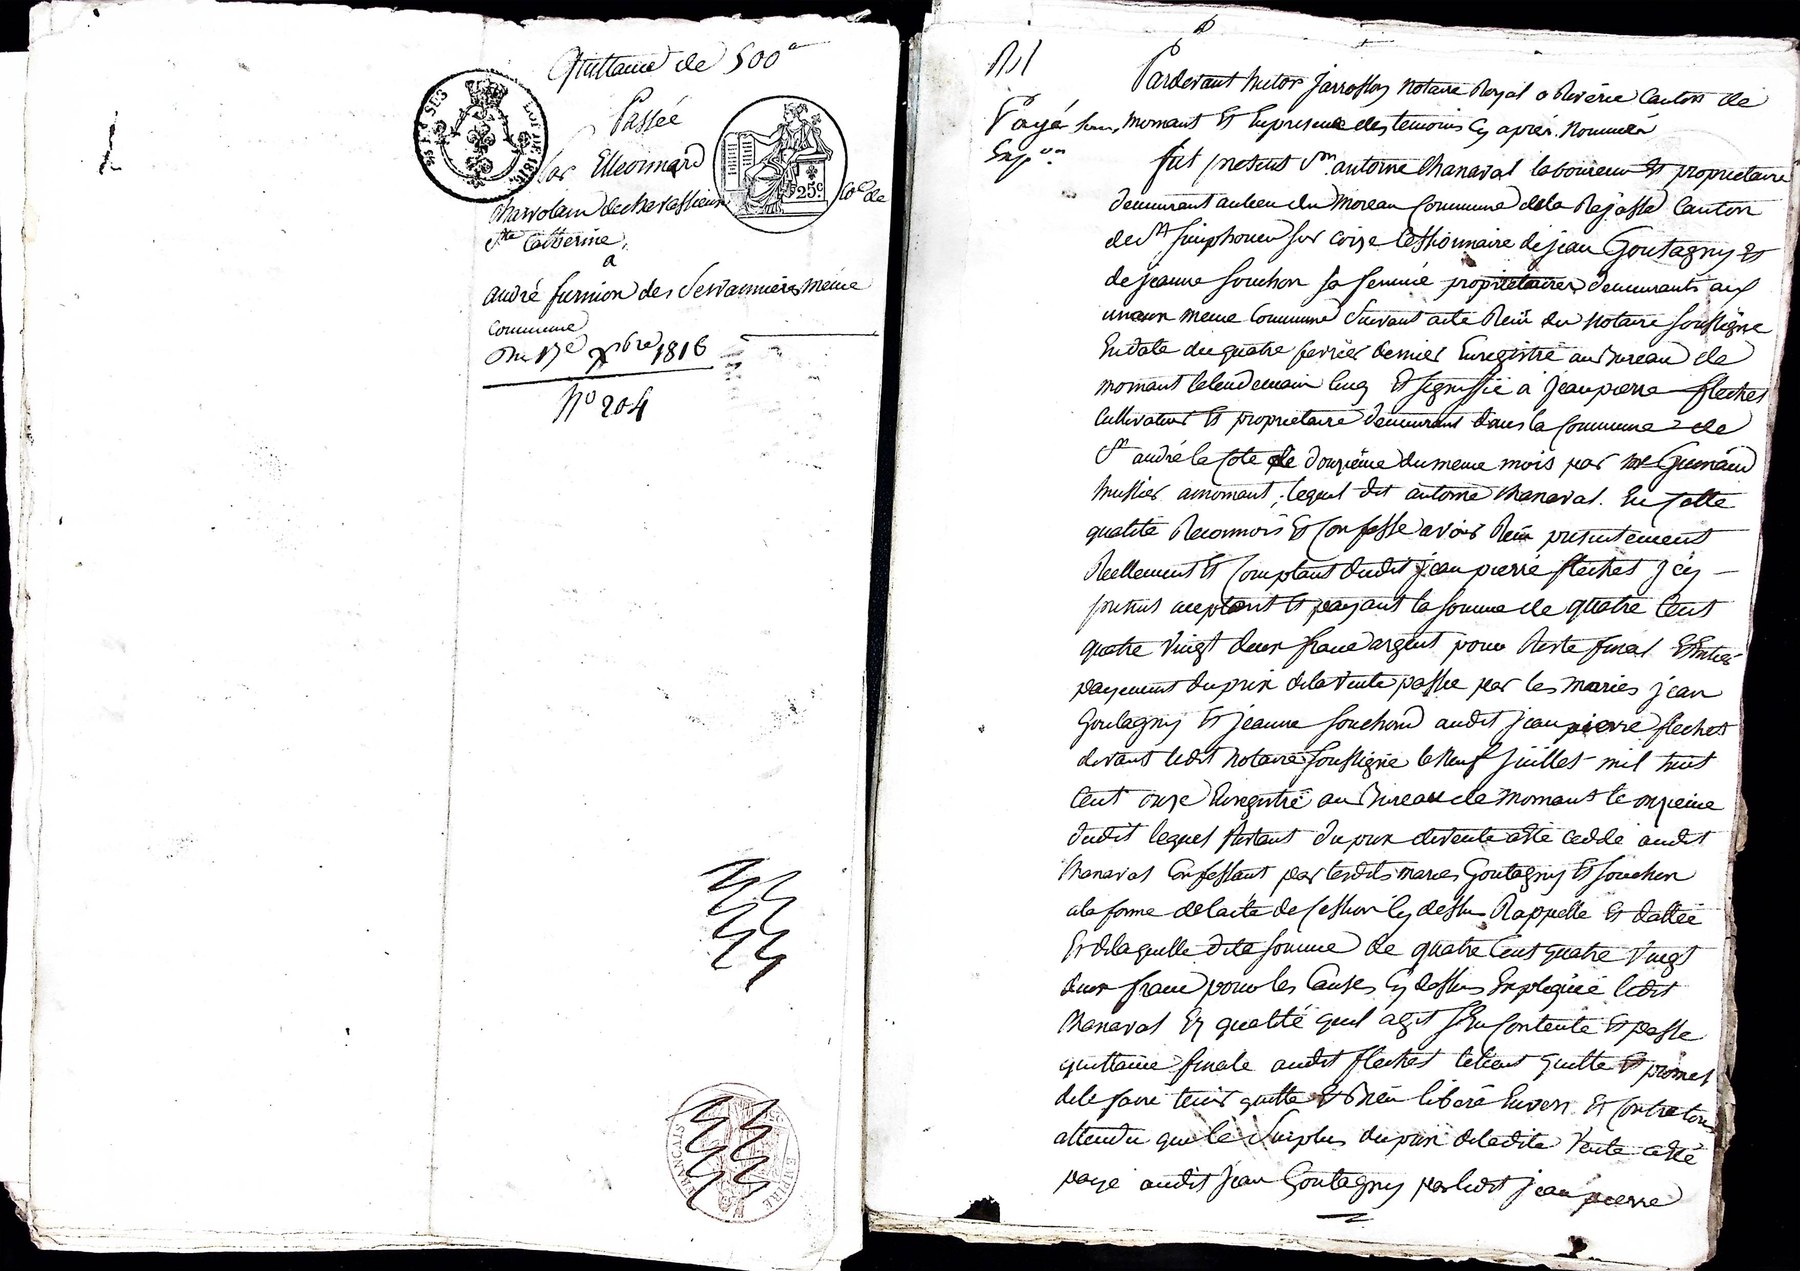 Quittance de 500
Passée
Par Elleonnard
charvolain de chavassieux Cne de
Ste Catherine,
a
andré furnion des Servannieres même
commune
Du 17e xbre 1816
No 204
25 c.
LOI DE 1816
EMPIRE FRANÇAIS
Pardevant hector jarrosson Notaire Royal a Riverie Canton de
Payé mornant Et En presence des temoins Cy après Nommés
Exp on
fut present Sr. antoine Chanaval laboureur Et proprietaire
demeurant au lieu du Moreau Commune de la Rajasse Canton
de St simphorien sur coize Cessionnaire de jean Goutagny Et
de jeanne souchon sa femme proprietaires demeurants aux
meme Commune Suivant acte Reçu du Notaire soussigné
En date du quatre fevrier dernier Enregistré au Bureau de
mornant le lendemain Cinq Et signiffié à jean pierre flechet
Cultivateur Et proprietaire demeurant dans la Commune de
St andré la Cote le douzième du meme mois par
huissier a mornant, lequel dit antoine Chanaval. En cette
qualité Reconnois Et Confesse avoir Reçu presentement
Reellement Et Comptant dudit jean pierre flechet jcy
present acceptant Et payant la somme de quatre Cent
quatre Vingt deux franc argent pour Reste final Et Entier
payement du prix de la Vente passée par les mariés jean
Goutagny Et jeanne souchon audit jean pierre flechet
devant ledit Notaire soussigné le Neuf juillet mil huit
Cent onze Enregistré au Bureau de mornant le onzieme
dudit lequel Restant du prix de vente a été ceddé audit
Chanaval Confessant par lesdits mariés Goutagny Et souchon
a la forme de l'acte de Cession Cy dessus Rappellé Et datté
Et de laquelle dite somme de quatre Cent quatre Vingt
deux franc pour les Causes Cy dessus Expliquée ledit
Chanaval En qualité quil agit s'En Contente Et passe
quittance finale audit flechet le tient quitte Et promet
de le faire tenir quitte Et Bien libéré Envers Et Contre tous
attendu que le Surplus du prix de ladite Vente a été
payé audit jean Goutagny par ledit jean pierre